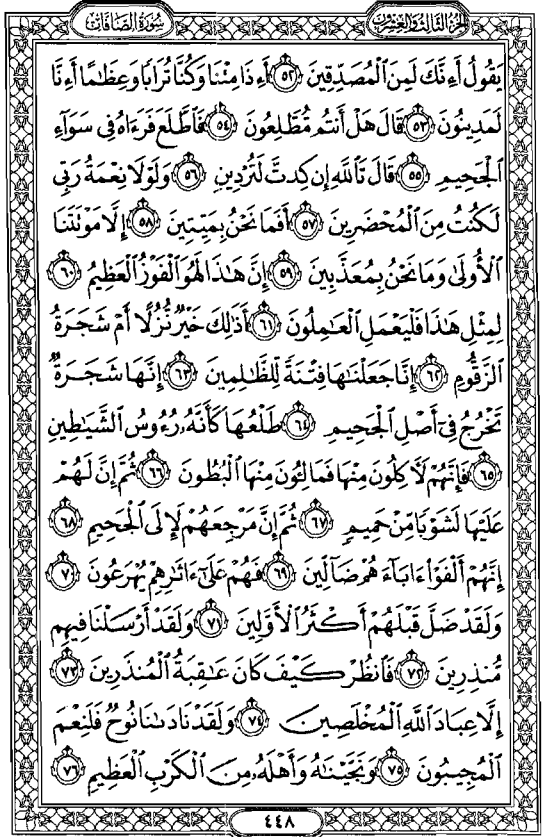 الجزء الثالث والعشرون
سورة الصافات
يَقُولُ أَءِنَّكَ لَمِنَ الْمُصَدِّقِينَ ﴿٥٢﴾ أَءِذَا مِتْنَا وَكُنَّا تُرَابًا وَعِظَٰمًا أَءِنَّا
لَمَدِينُونَ ﴿٥٣﴾ قَالَ هَلْ أَنتُم مُّطَّلِعُونَ ﴿٥٤﴾ فَاطَّلَعَ فَرَءَاهُ فِى سَوَآءِ
الْجَحِيمِ ﴿٥٥﴾ قَالَ تَاللَّهِ إِن كِدتَّ لَتُرْدِينِ ﴿٥٦﴾ وَلَوْلَا نِعْمَةُ رَبِّى
لَكُنتُ مِنَ الْمُحْضَرِينَ ﴿٥٧﴾ أَفَمَا نَحْنُ بِمَيِّتِينَ ﴿٥٨﴾ إِلَّا مَوْتَتَنَا
الْأُولَىٰ وَمَا نَحْنُ بِمُعَذَّبِينَ ﴿٥٩﴾ إِنَّ هَٰذَا لَهُوَ الْفَوْزُ الْعَظِيمُ ﴿٦٠﴾
لِمِثْلِ هَٰذَا فَلْيَعْمَلِ الْعَٰمِلُونَ ﴿٦١﴾ أَذَٰلِكَ خَيْرٌ نُّزُلًا أَمْ شَجَرَةُ
الزَّقُّومِ ﴿٦٢﴾ إِنَّا جَعَلْنَٰهَا فِتْنَةً لِّلظَّٰلِمِينَ ﴿٦٣﴾ إِنَّهَا شَجَرَةٌ
تَخْرُجُ فِىٓ أَصْلِ الْجَحِيمِ ﴿٦٤﴾ طَلْعُهَا كَأَنَّهُۥ رُءُوسُ الشَّيَٰطِينِ
﴿٦٥﴾ فَإِنَّهُمْ لَءَاكِلُونَ مِنْهَا فَمَالِـُٔونَ مِنْهَا الْبُطُونَ ﴿٦٦﴾ ثُمَّ إِنَّ لَهُمْ
عَلَيْهَا لَشَوْبًا مِّنْ حَمِيمٍ ﴿٦٧﴾ ثُمَّ إِنَّ مَرْجِعَهُمْ لَإِلَى الْجَحِيمِ ﴿٦٨﴾
إِنَّهُمْ أَلْفَوْا۟ ءَابَآءَهُمْ ضَآلِّينَ ﴿٦٩﴾ فَهُمْ عَلَىٰٓ ءَاثَٰرِهِمْ يُهْرَعُونَ ﴿٧٠﴾
وَلَقَدْ ضَلَّ قَبْلَهُمْ أَكْثَرُ الْأَوَّلِينَ ﴿٧١﴾ وَلَقَدْ أَرْسَلْنَا فِيهِم
مُّنذِرِينَ ﴿٧٢﴾ فَانظُرْ كَيْفَ كَانَ عَٰقِبَةُ الْمُنذَرِينَ ﴿٧٣﴾
إِلَّا عِبَادَ اللَّهِ الْمُخْلَصِينَ ﴿٧٤﴾ وَلَقَدْ نَادَىٰنَا نُوحٌ فَلَنِعْمَ
الْمُجِيبُونَ ﴿٧٥﴾ وَنَجَّيْنَٰهُ وَأَهْلَهُۥ مِنَ الْكَرْبِ الْعَظِيمِ ﴿٧٦﴾
٤٤٨